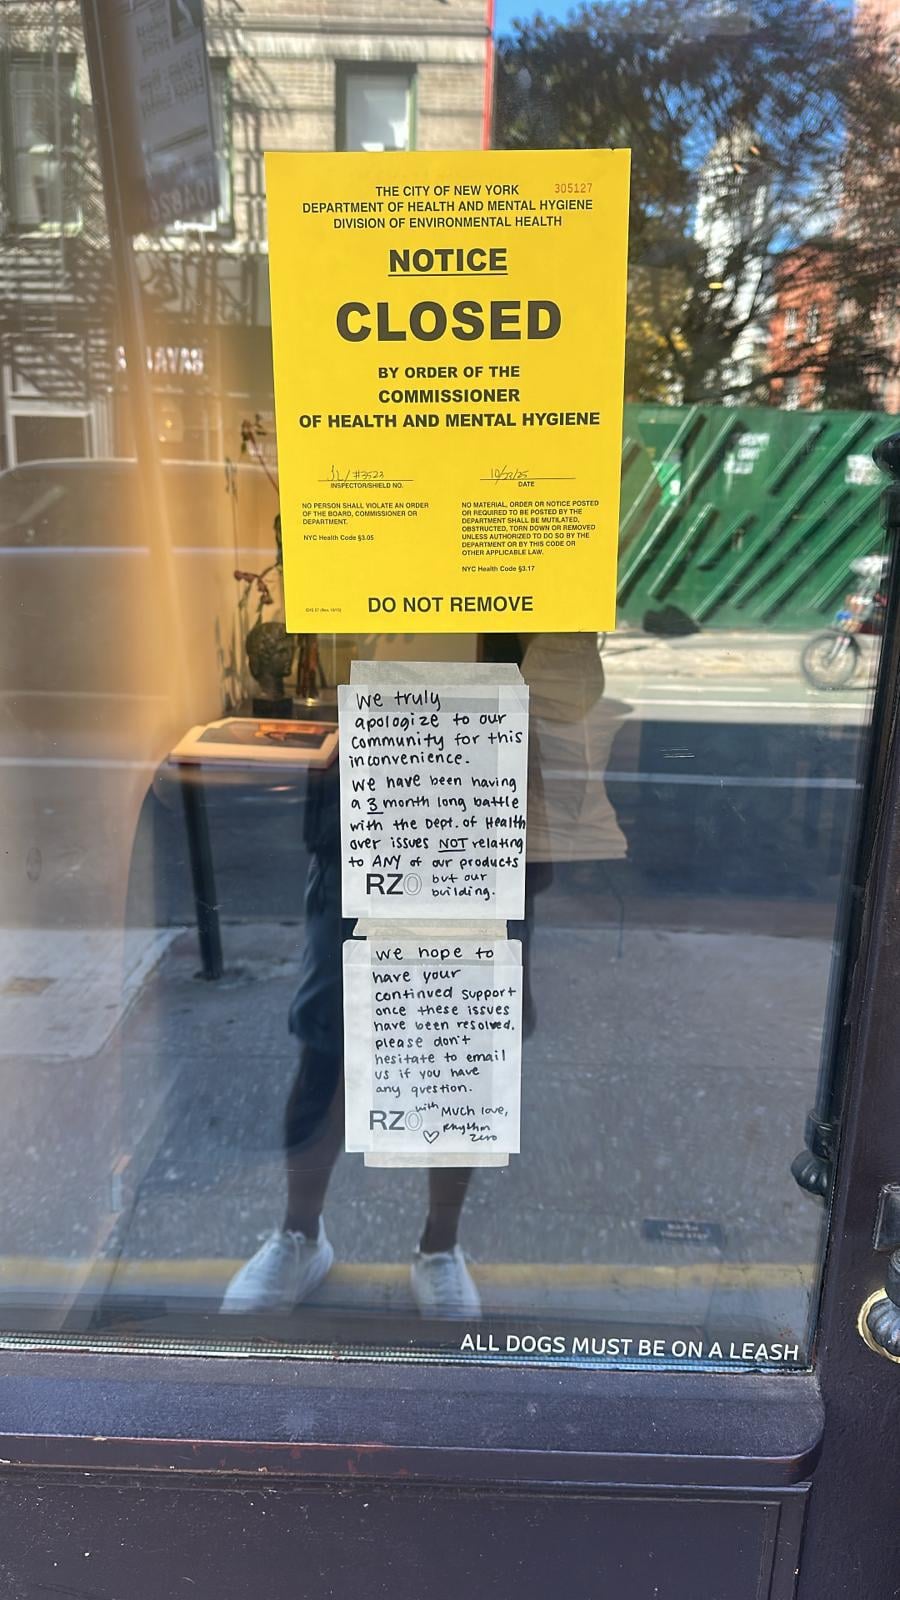 THE CITY OF NEW YORK 305127
DEPARTMENT OF HEALTH AND MENTAL HYGIENE
DIVISION OF ENVIRONMENTAL HEALTH
NOTICE
CLOSED
BY ORDER OF THE
COMMISSIONER
OF HEALTH AND MENTAL HYGIENE
JL/#3523
INSPECTOR/SHIELD NO.
DATE
NO PERSON SHALL VIOLATE AN ORDER
OF THE BOARD, COMMISSIONER OR
DEPARTMENT.
NYC Health Code §3.05
NO MATERIAL, ORDER OR NOTICE POSTED
OR REQUIRED TO BE POSTED BY THE
DEPARTMENT SHALL BE MUTILATED,
OBSTRUCTED, TORN DOWN OR REMOVED
UNLESS AUTHORIZED TO DO SO BY THE
DEPARTMENT OR BY THIS CODE OR
OTHER APPLICABLE LAW.
NYC Health Code §3.17
DO NOT REMOVE
We truly
apologize to our
community for this
inconvenience.
We have been having
a 3 month long battle
with the Dept. of Health
over issues NOT relating
to ANY of our products
RZ0 but our
building.
we hope to
have your
continued support
once these issues
have been resolved.
please don't
hesitate to email
us if you have
any question.
RZ0 with Much love,
Rhythm
Zero
ALL DOGS MUST BE ON A LEASH